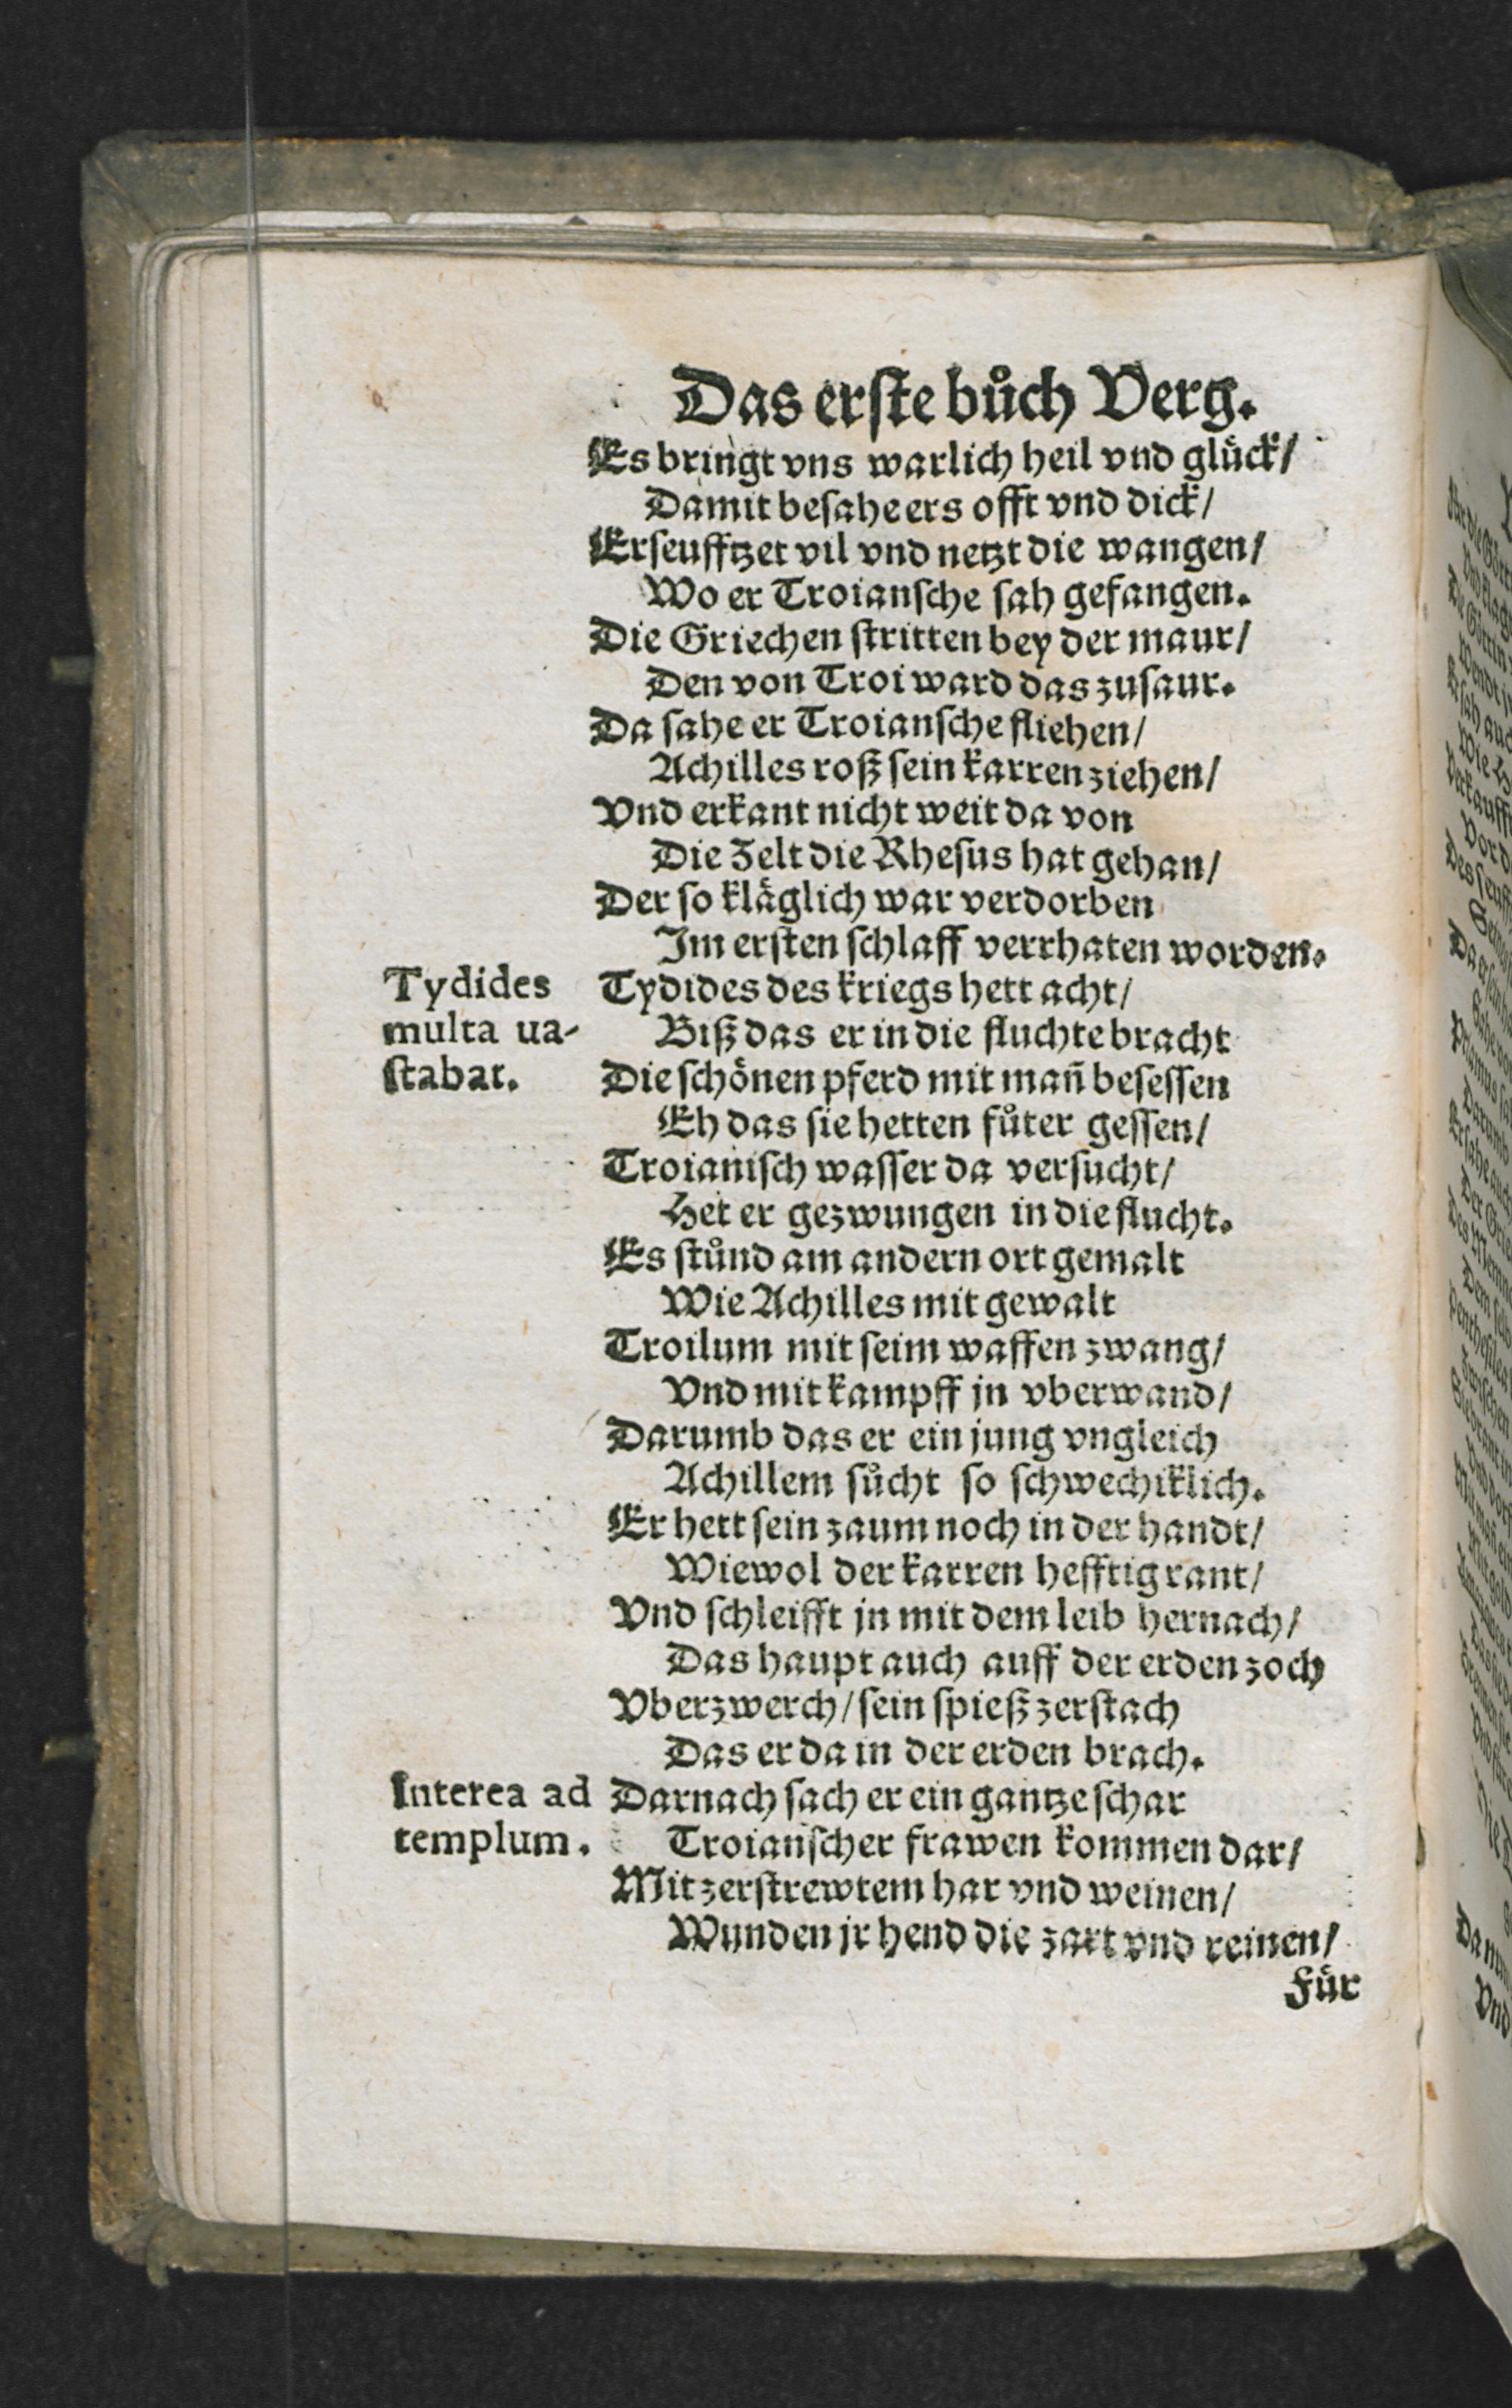 Das erste bůch Verg.
Es bringt vns warlich heil vnd glück/
Damit besahe ers offt vnd dick/
Erseufftzet vil vnd netzt die wangen/
Wo er Troiansche sah gefangen.
Die Griechen stritten bey der maur/
Den von Troi ward das zusaur.
Da sahe er Troiansche fliehen/
Achilles roß sein karren ziehen/
Vnd erkant nicht weit da von
Die Zelt die Rhesus hat gehan/
Der so kläglich war verdorben
Im ersten schlaff verrhaten worden.
Tydides
multa ua-
stabat.
Tydides des kriegs hett acht/
Biß das er in die fluchte bracht
Die schönen pferd mit mañ besessen
Eh das sie hetten fůter gessen/
Troianisch wasser da versucht/
Het er gezwungen in die flucht.
Es stůnd am andern ort gemalt
Wie Achilles mit gewalt
Troilum mit seim waffen zwang/
Vnd mit kampff jn vberwand/
Darumb das er ein jung vngleich
Achillem sůcht so schwechiklich.
Er hett sein zaum noch in der handt/
Wiewol der karren hefftig rant/
Vnd schleifft jn mit dem leib hernach/
Das haupt auch auff der erden zoch
Vberzwerch/ sein spieß zerstach
Das er da in der erden brach.
Interea ad
templum.
Darnach sach er ein gantze schar
Troianscher frawen kommen dar/
Mit zerstrewtem har vnd weinen/
Wunden jr hend die zart vnd reinen/
Für